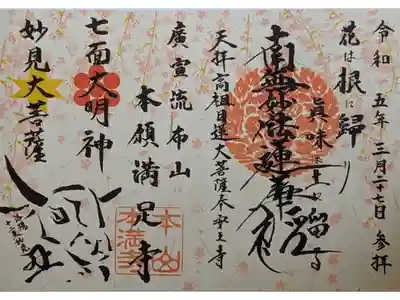 令和五年三月二十七日参拝
花は根に歸り
眞味は土に留る
南無妙法蓮華経
天拝高祖日蓮大菩薩
廣宣流布山
本願満足寺
本山
本満寺
七面大明神
妙見大菩薩